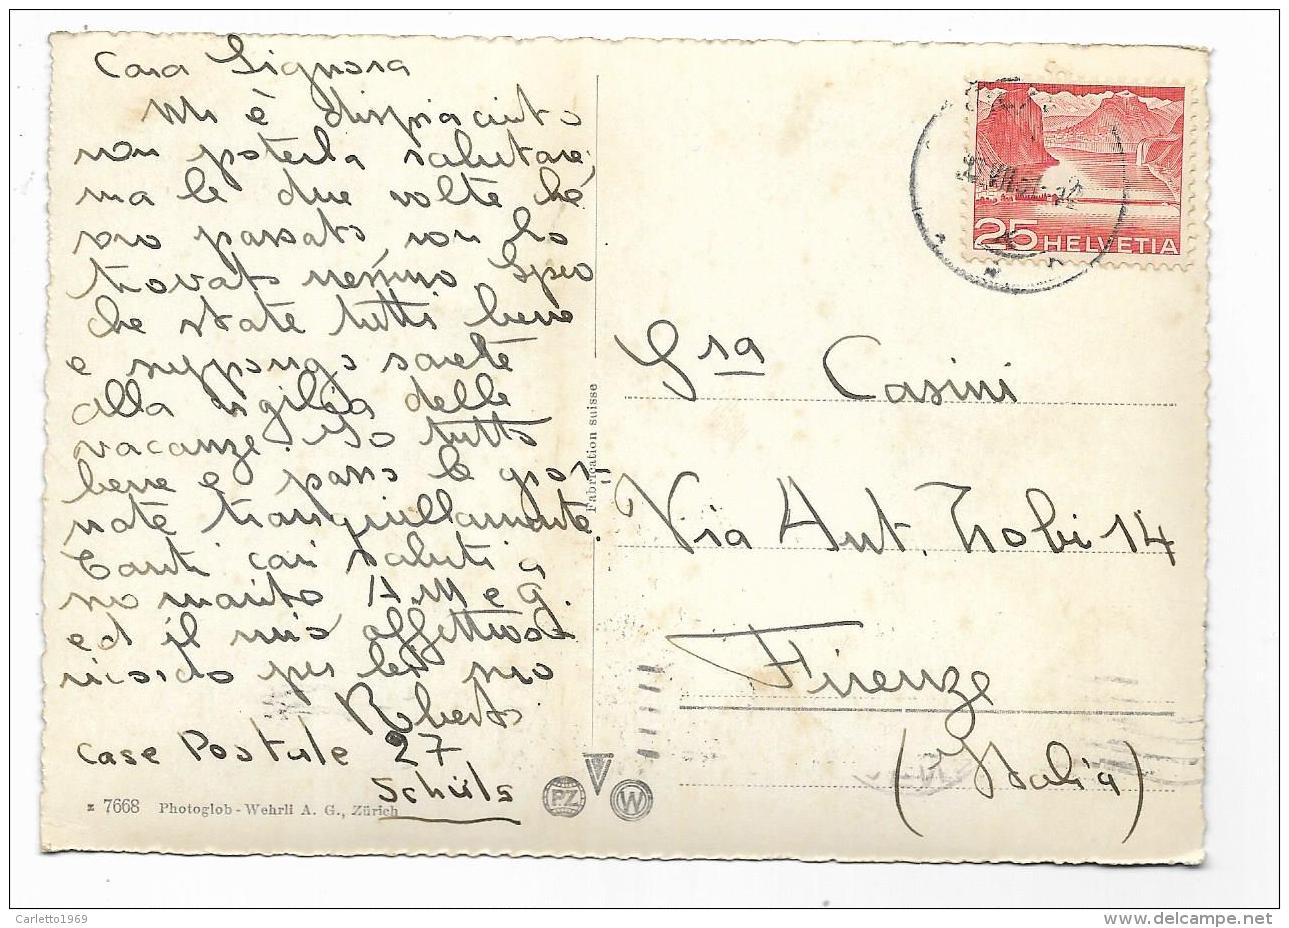 Cara Signora
Mi è dispiaciuto
non poterla salutare,
ma le due volte che
sono passato, non ho
trovato nessuno. Spero
che state tutti bene
e suppongo sarete
alla vigilia delle
vacanze. Io tutto
bene e passo le gior-
nate tranquillamente.
Tanti cari saluti a
suo marito A.M e G.
ed il mio affettuoso
ricordo per lei suo
Roberto
Case Postale 27
Schuls
z 7668 Photoglob - Wehrli A. G., Zürich
Fabrication suisse
PZ
W
25 HELVETIA
Sra Casini
Via Ant. Zobi 14
Firenze
(Italia)
Carletto1969
delcampe.net